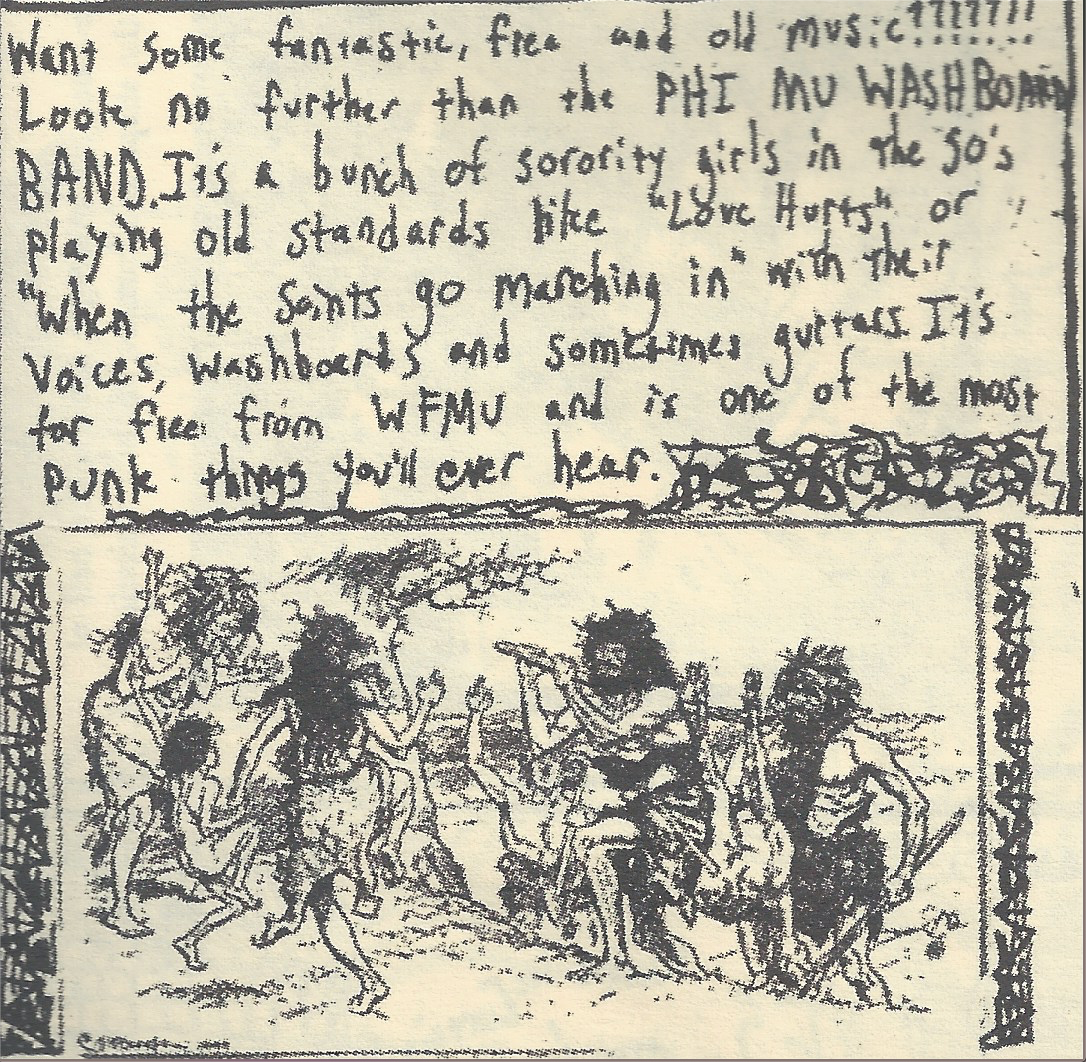 Want some fantastic, free and old music???????
Look no further than the PHI MU WASHBOARD
BAND. It's a bunch of sorority girls in the 50's
playing old standards like "Love Hurts" or
"When the Saints go marching in" with their
voices, washboards and sometimes guitars. It's
for free from WFMU and is one of the most
punk things you'll ever hear.